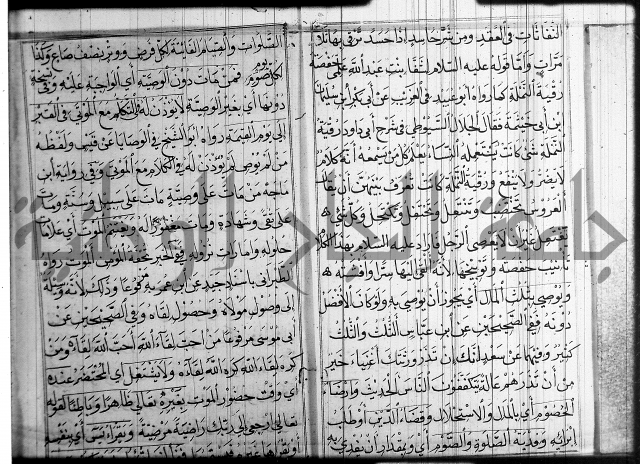 النفاثات في العقد ومن شر حاسد اذا حسد ثم في بها ثلاث
مرات واما قوله عليه السلام لشفاء بنت عبد الله علمي حفصة
رقية النملة كما رواه ابو عبيد في الغريب عن ابي بكر بن سليمان
بن ابي خيثمة فقال الجلال السيوطي في شرح ابي داود رقية
النملة شي كانت يستعمله النساء يعلم كل من سمعه انه كلام
لا يضر ولا ينفع ورقية النملة كانت تعرف بينهن ان يقال
العروس تحتفل وتختضب وتكتحل وكل شي
غير ان لا تعصي الرجل فاراد عليه السلام بهذا الكلام
تأنيب حفصة لانه القى اليها سرا وافشته
ويوصي بثلث المال اي يجوز ان يوصي به ولو كان الافضل
دونه ففي الصحيحين عن ابن عباس الثلث والثلث
كثير وفيهما عن سعد انك ان تذر ورثتك اغنياء خير
من ان تذرهم عالة يتكففون الناس الحديث وارضاء
الخصوم اي بالمال والاستحلال وقضاء الدين او طلب
ابرائه وفدية الصلوة والصوم اي ومقدار ان يفدي به
الصلوات والصيام الفائتة لكل فرض ووتر نصف صاع وكذا
لكل صوم يوم فمن مات دون الوصية اي الواجبة عليه وفي نسخة
دونها اي بغير الوصية لا يؤذن له في التكلم مع الموتى في القبر
الى يوم القيمة رواه ابو الشيخ في الوصايا عن قيس ولفظه
من لم يوص لم يؤذن له في الكلام مع الموتى وفي رواية ابن
ماجه من مات على وصية مات على سبيل وسنة ومات
على تقى وشهادة ومات مغفورا له ويغتنم الموت اي علاماته
حلوله وامارات نزوله ففي الخبر تحفة المؤمن الموت رواه
الطبراني باسناد جيد عن ابن عمر مرفوعا وذلك لانه وسيلة
الى وصول مولاه وحصول لقاه وفي الصحيحين عن
ابي موسى مرفوعا من احب لقاء الله احب الله لقاءه ومن
كره لقاء الله كره الله لقاءه ولا يشتغل اي المحتضر عنده
اي وقت حضور الموت بغيره تعالى ظاهرا وباطنا لقوله
تعالى ارجعي الى ربك راضية مرضية ويقراء يس اي بنفسه
جامعة الملك